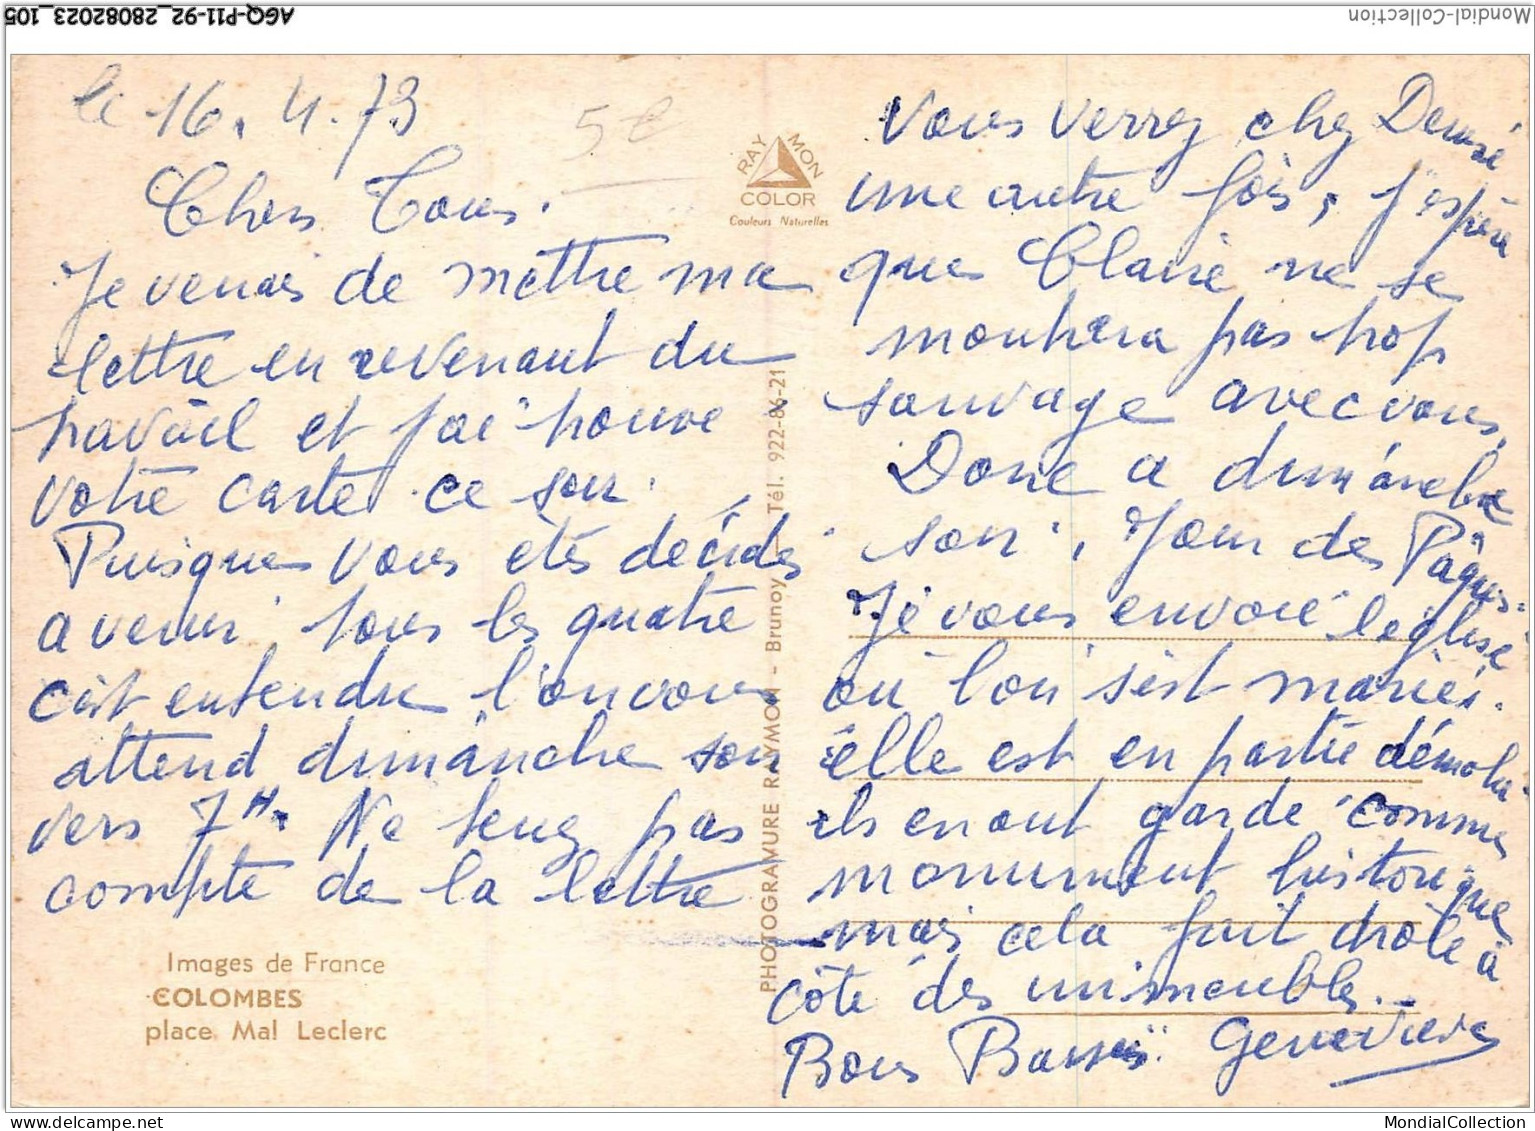 AGQ-P11-92_28082023_105
Mondial-Collection
le 16.4.73
5€
Chers Tous.
Je venais de mettre ma
lettre en revenant du
travail et j'ai trouvé
votre carte ce soir.
Puisque vous êtes décidés
a venir tous les quatre
c'est entendu l'on vous
attend dimanche soir
vers 7H. Ne tenez pas
compte de la lettre
Images de France
COLOMBES
place Mal Leclerc
RAYMON
COLOR
Couleurs Naturelles
PHOTOGRAMURE RAYMON - Brunoy - Tél. 922-86-21
Vous verrez chez Denise
une autre fois, j'espère
que Claire ne se
montrera pas trop
sauvage avec vous.
Donc a dimanche
soir, Jour de Pâques.
Je vous envoie l'église
où l'on s'est mariés.
elle est en partie démolie
ils en ont gardé comme
monument historique
mais cela fait drôle à
côté des immeubles.
Bons Baisers. Geneviève
delcampe.net
MondialCollection